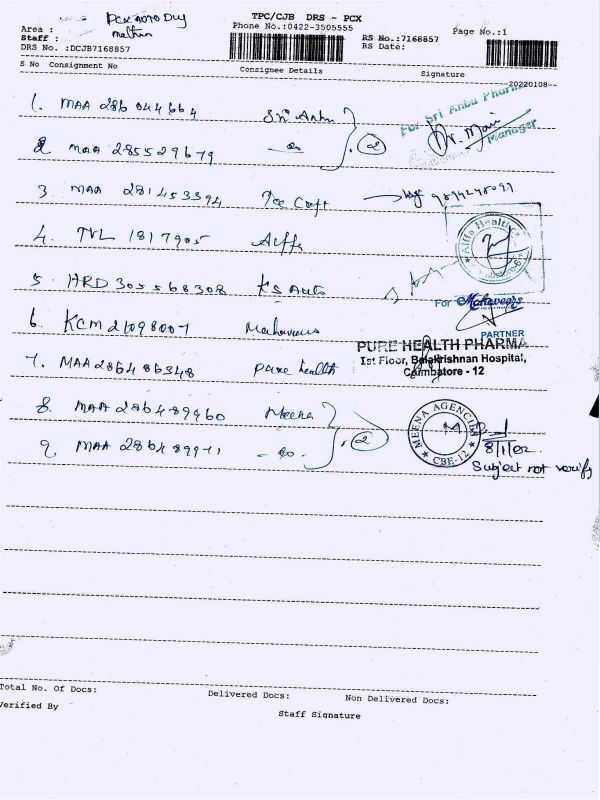 TPC/CJB DRS - PCX
Phone No.:0422-3505555
Page No.:1
Area :
Staff :
DRS No. :DCJB7168857
RS No.:7168857
RS Date:
S No Consignment No Consignee Details Signature
20220108
1. MAA 286044664 Sri Anbu
For Sri Anbu Pharma
Manager
2. MAA 285529679 - do - (2)
3. MAA 281453394 Tee
4. TVL 1817905
5. HRD 305568308 KS Auto
For Mahaveers
PARTNER
6. KCM 21098007 Mahaveers
PURE HEALTH PHARMA
1st Floor, Balakrishnan Hospital,
Coimbatore - 12
7. MAA 286486348 pure health
8. MAA 286489960 Meena
MEENA AGENCIES
CBE-12
9. MAA 2864899 - do - (2)
8/1/02
Subject not verify
Total No. Of Docs: Delivered Docs: Non Delivered Docs:
Verified By
Staff Signature